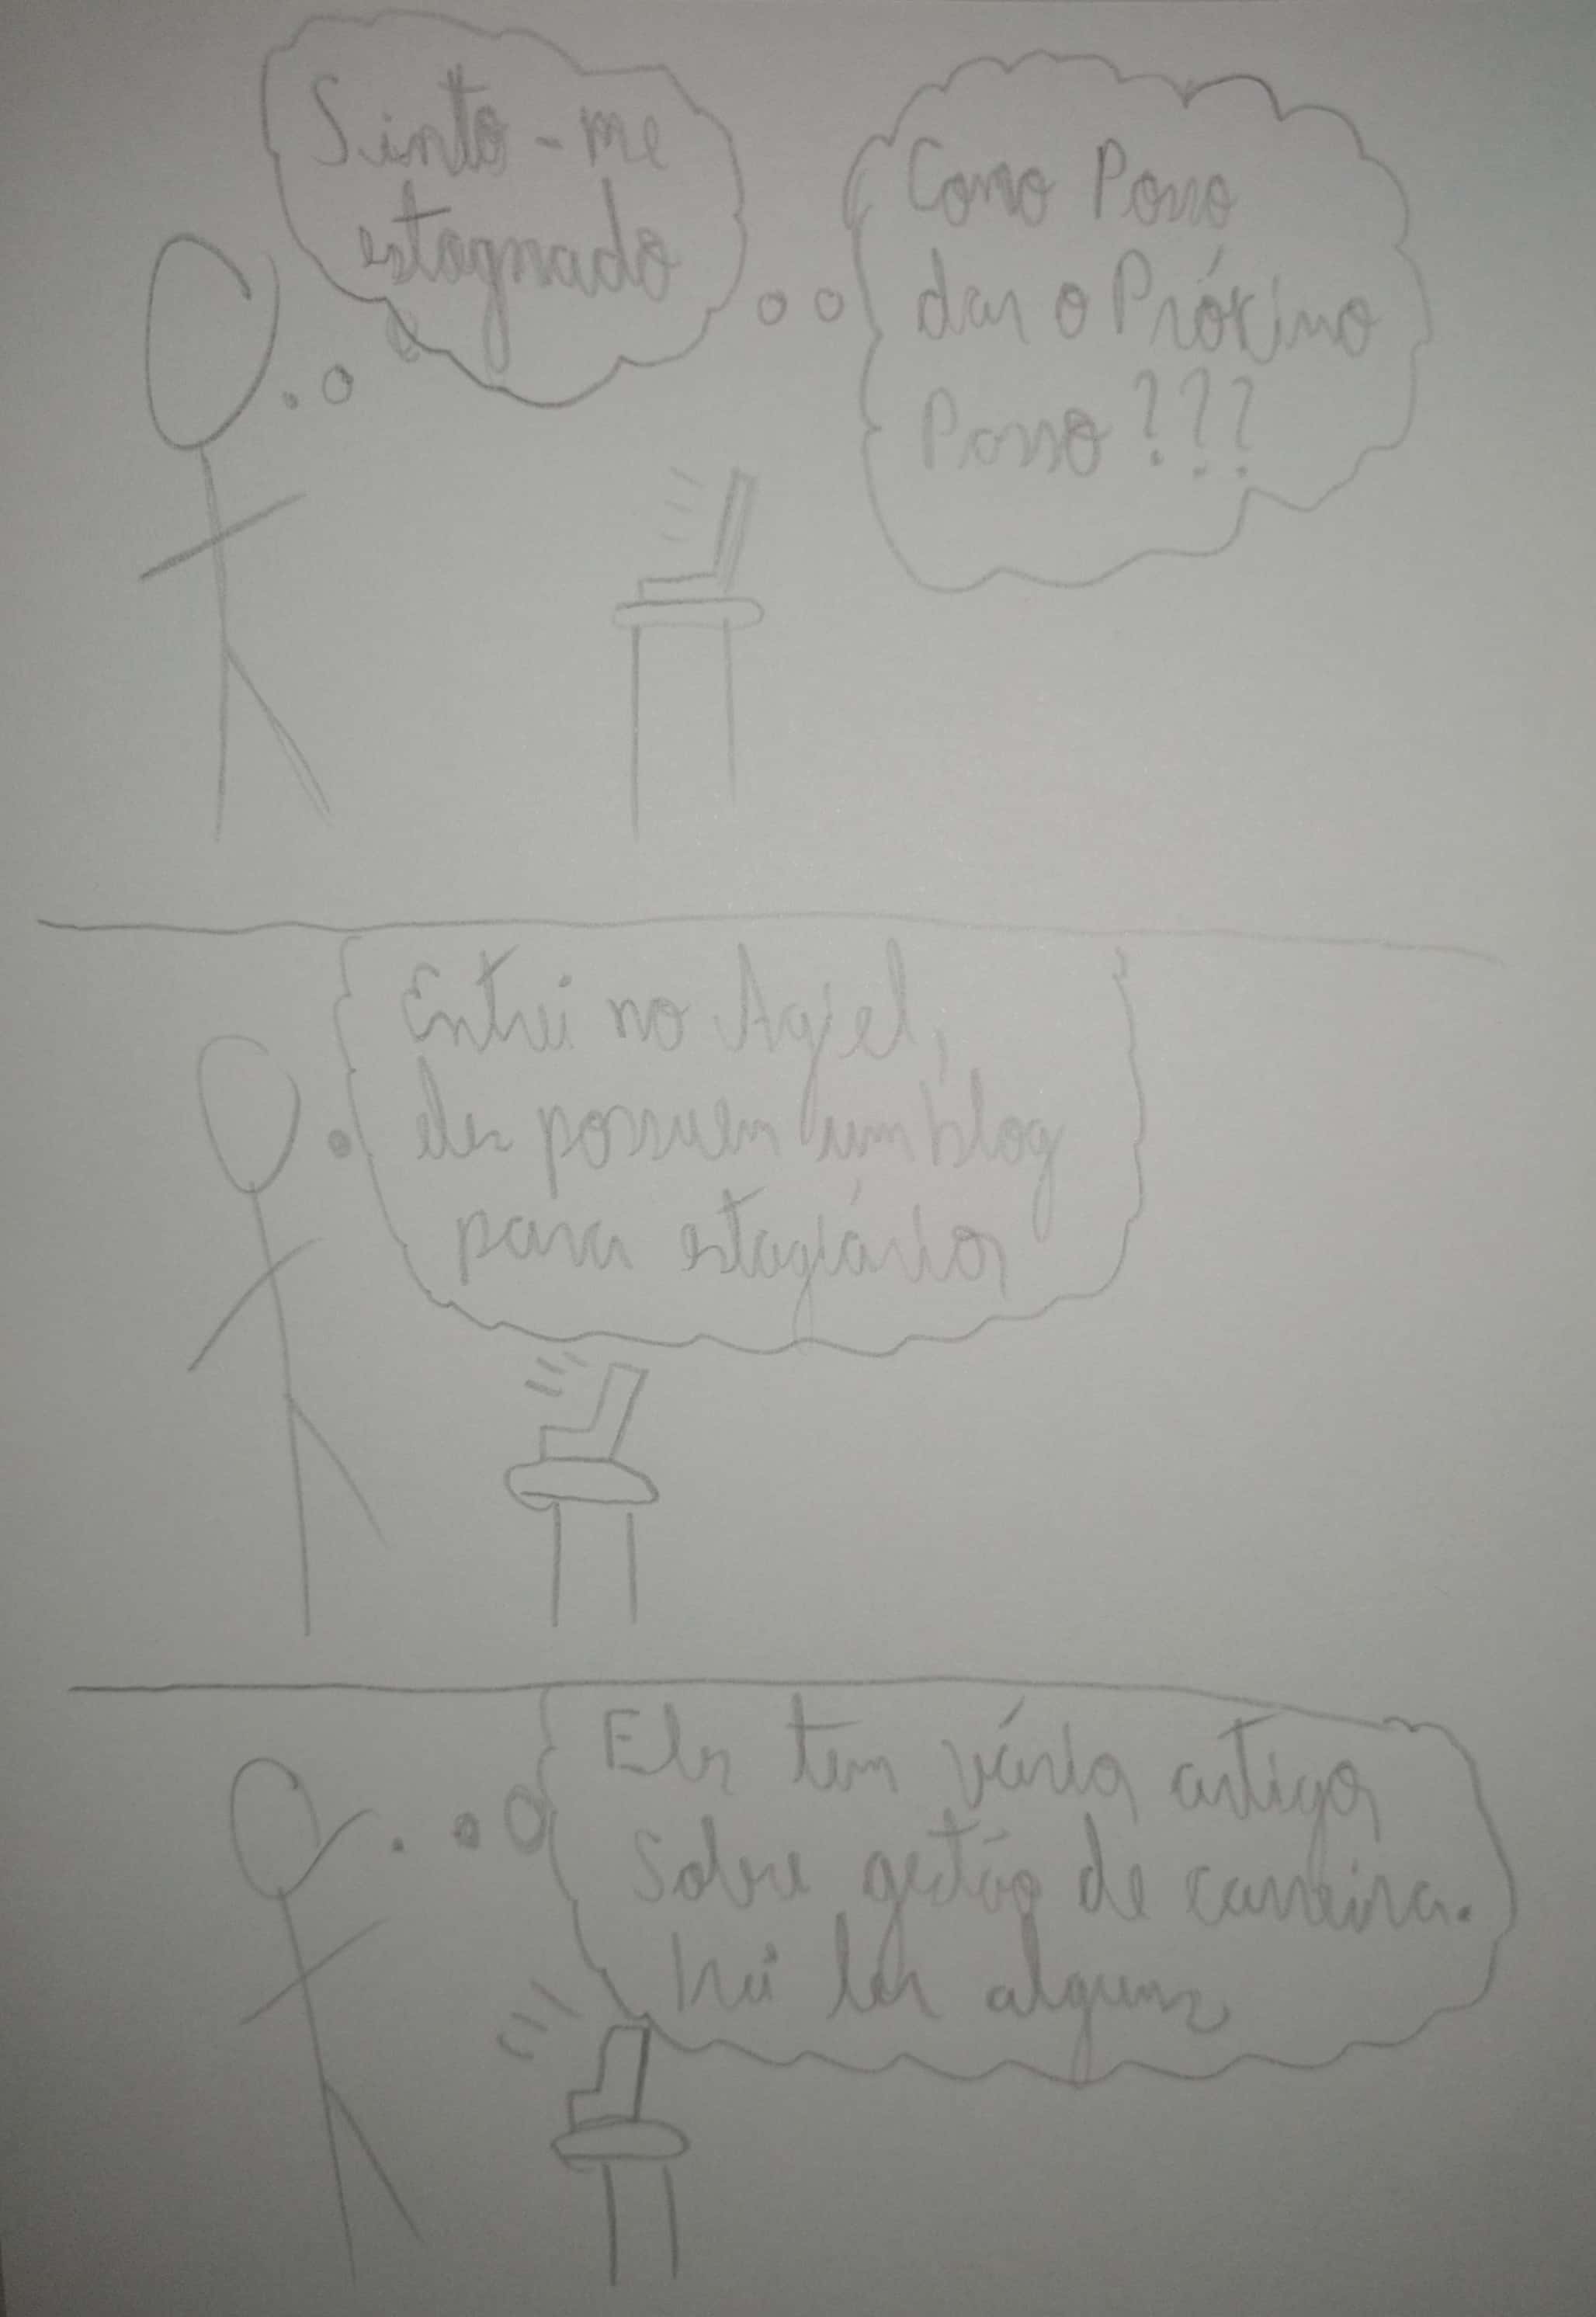 Sinto-me
estagnado
Como Posso
dar o Próximo
Passo???
Entrei no Agiel,
eles possuem um blog
para estagiários
Eles tem vários artigos
Sobre gestão de carreira.
Irei ler alguns